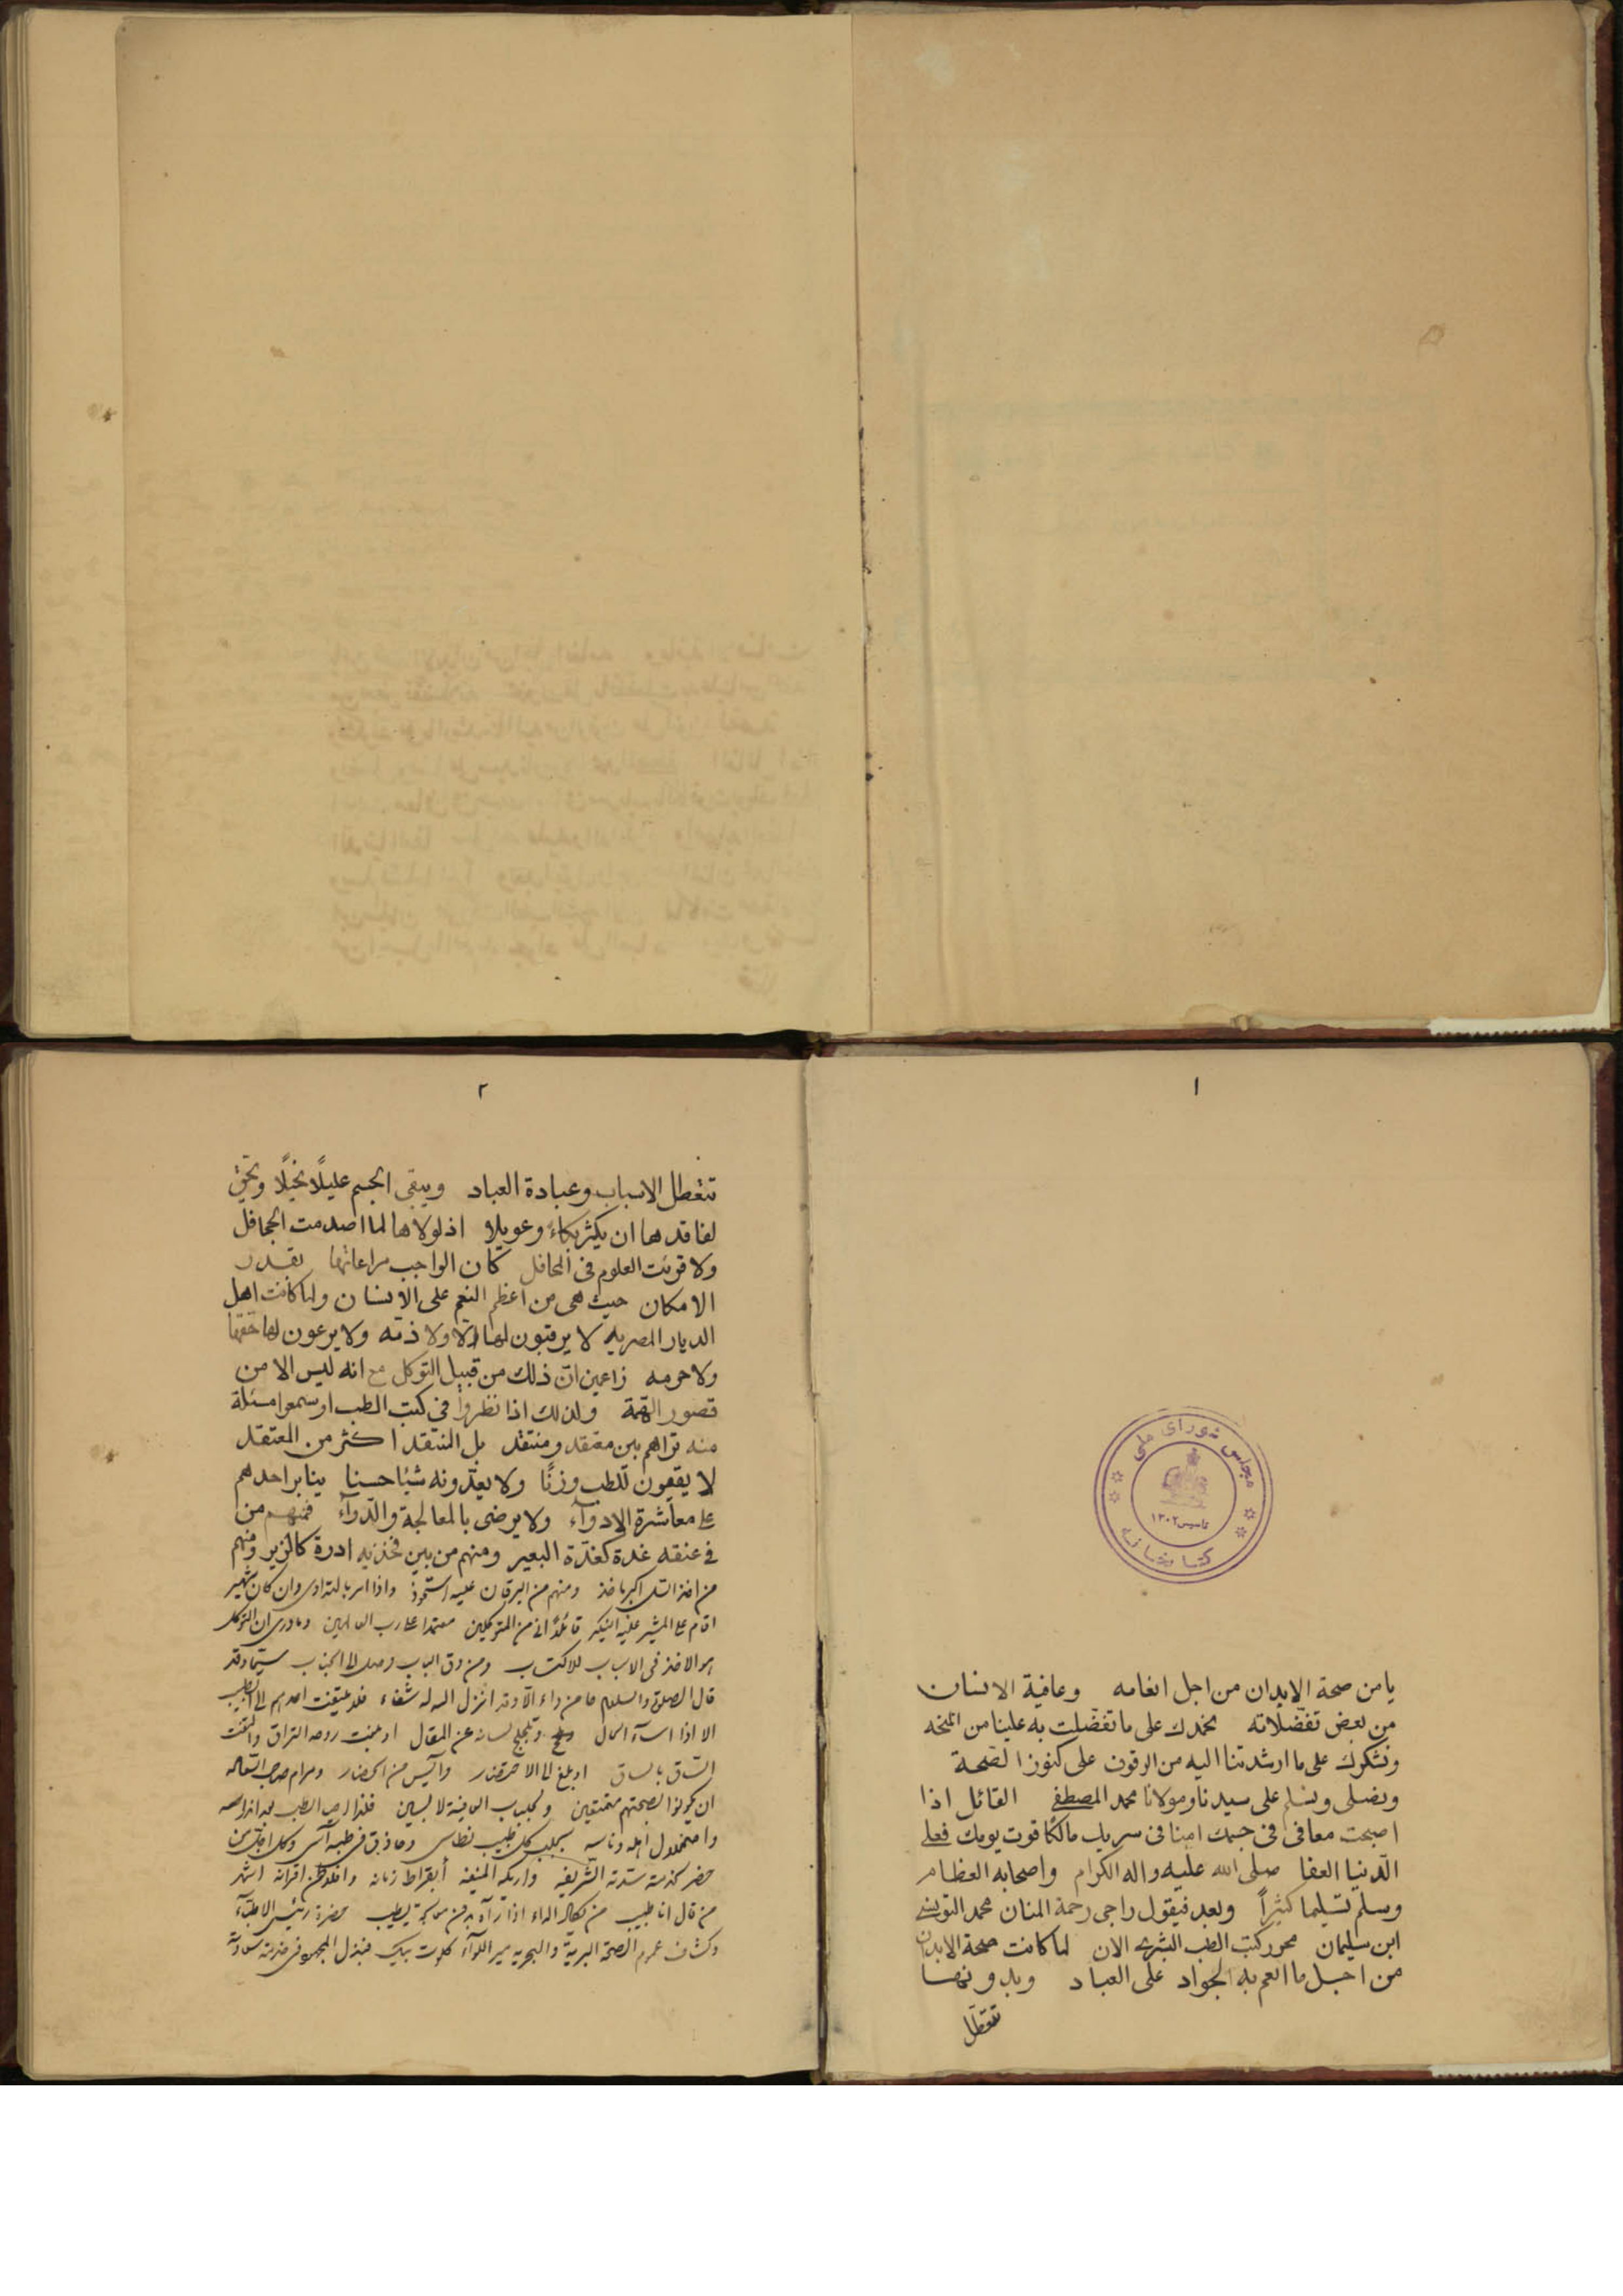 ١
مجلس شورای ملی
تاسیس ١٣٠٢
کتابخانه
يا من صحة الابدان من اجل انعامه وعافية الانسان
من بعض تفضلاته نحمدك على ما تفضلت به علينا من المنحه
ونشكرك على ما ارشدتنا اليه من الوقوف على كنوز الصحة
ونصلى ونسلم على سيدنا ومولانا محمد المصطفى القائل اذا
اصبحت معافى فى جسمك امنا فى سربك مالكا قوت يومك فعلى
الدنيا العفا صلى الله عليه واله الكرام واصحابه العظام
وسلم تسليما كثيراً وبعد فيقول راجى رحمة المنان محمد التونسى
ابن سليمان محرر كتب الطب البشرى الان لما كانت صحة الابدان
من اجل ما انعم به الجواد على العباد وبدونها
تتعطل
٢
تتعطل الاسباب وعبادة العباد ويبقى الجسم عليلًا نحيلًا ويحق
لفاقدها ان يكثر بكاءً وعويلا اذ لولاها لما اصدمت الجحافل
ولا قرئت العلوم فى المحافل كان الواجب مراعاتها بقدر
الامكان حيث هى من اعظم النعم على الانسان ولما كانت اهل
الديار المصريه لا يرقبون لها الا ولا ذمه ولا يرعون لها حقها
ولا حرمه زاعمين ان ذلك من قبيل التوكل مع انه ليس الا من
قصور الهمة ولذلك اذا نظروا فى كتب الطب او سمعوا مسئلة
منه تراهم بين معتقد ومنتقد بل المنتقد اكثر من المعتقد
لا يقيمون للطب وزنًا ولا يعدونه شيئا حسنا يثابر احدهم
على معاشرة الادوآء ولا يرضى بالمعالجة والدوآء فمنهم من
فى عنقه غدة كغدّة البعير ومنهم من بين فخذيه ادرة كالزير ومنهم
من اخذ السل اكبر ماخذ ومنهم من اليرقان عليه استحوذ واذا امر بالتداوى وان كان شهير
اقام على المشير عليه النكير قائلًا انى من المتوكلين معتمدا على رب العالمين وما درى ان التوكل
هو الاخذ فى الاسباب للاكتساب ومن دق الباب وصل الى الجناب سيما وقد
قال الصلوة والسلام ما من داء الا وقد انزل الله له شفاء فلا يلتفت احدهم الى الطبيب
الا اذا اسآء الحال وتلجلج لسانه عن المقال او بلغت روحه التراق والتفت
الساق بالساق او بلغ الى الاحتضار وآئيس من الحضار ومرام صاحب السعاله
ان يكونوا لصحتهم معتنقين ولجلباب العافية لابسين فلذا
واضمحلال اهله وناسه بجلب كل طبيب نطاسى وحاذق فى طبه آسى وكل
حضر لخدمته سدته الشريفه واريكته المنيفه أبقراط زمانه وافلاطون اقرانه اشهر
من قال انا طبيب من لكل الداء اذا رآه بدون يطيب حضرة رئيس الاطباء
وكشاف عموم الصحة البرية والبحريه مير اللوآء كلوت بيك فبذل المجهود فى خدمته سعادته